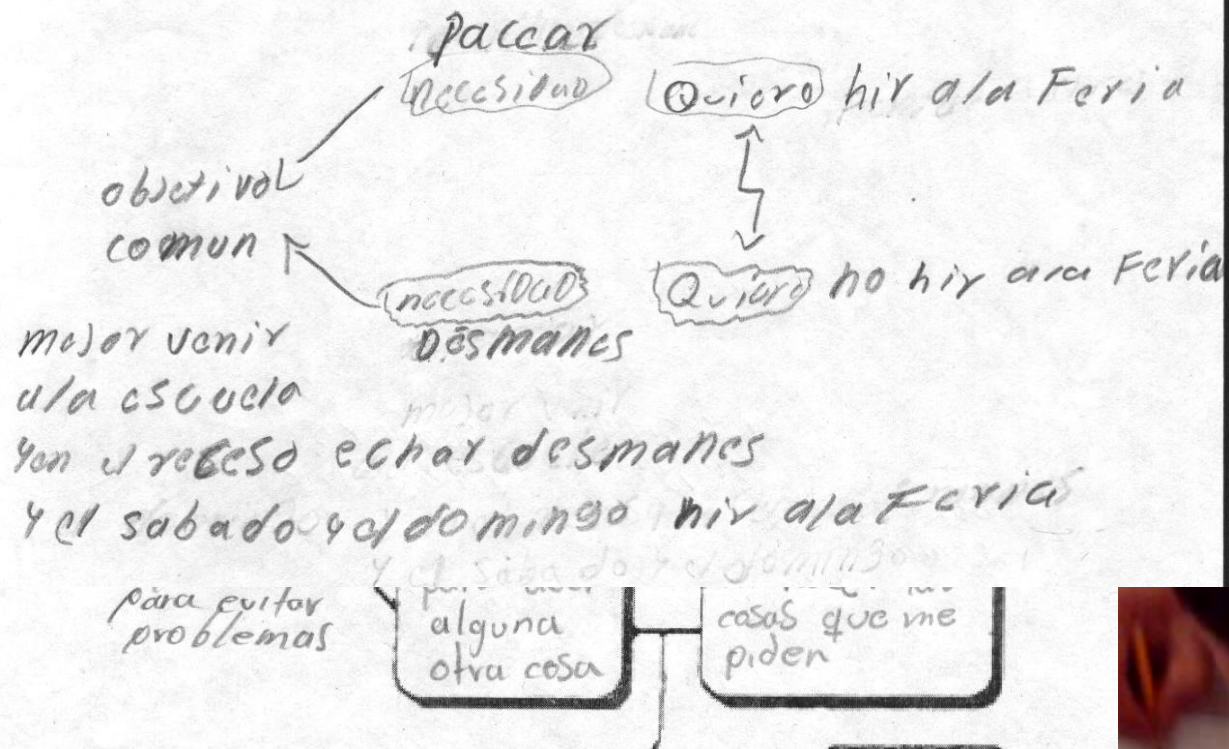 paccar
necesidad Quiero hir ala Feria
objetival
comun
necesidad Quiero no hir ala Feria
mejor venir Desmanes
ala escuela
y en el receso echar desmanes
y el sabado y el domingo hir ala Feria
para evitar
problemas
alguna
otra cosa
cosas que me
piden